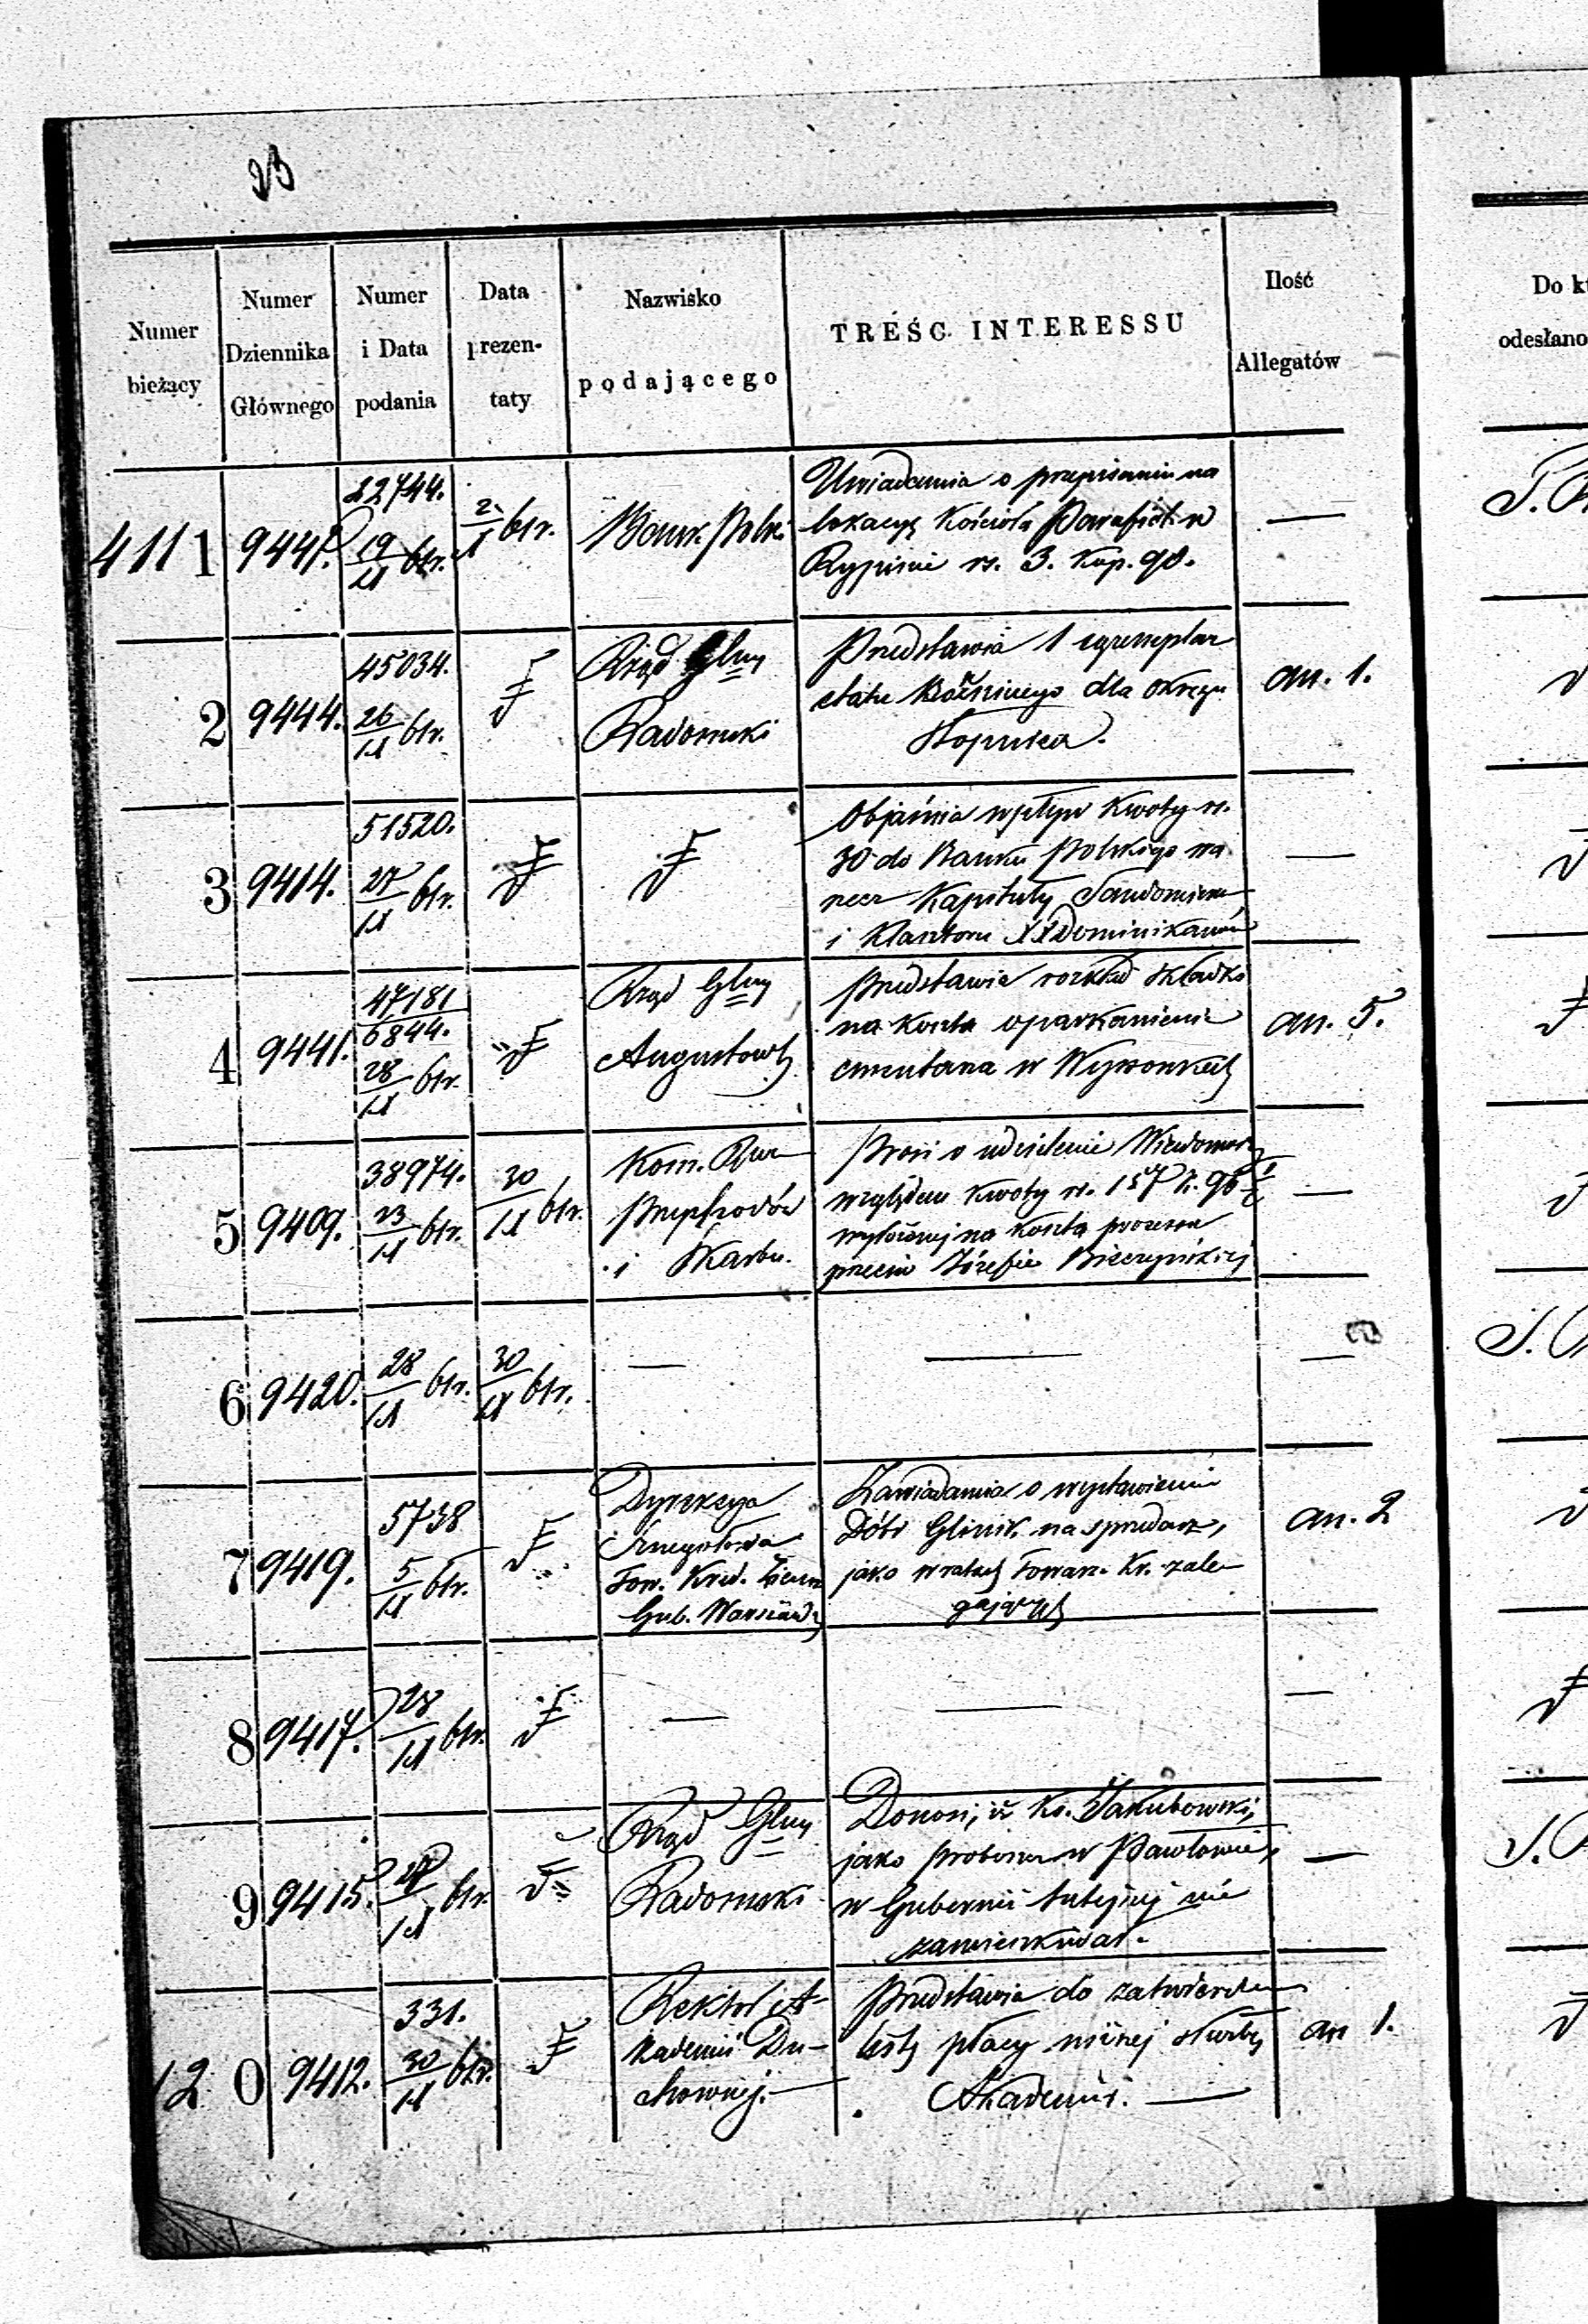 Numer
bieżący
Numer
Dziennika
Głównego
Numer
i Data
podania
Data
prezen-
taty
Nazwisko
podającego
TREŚC INTERESSU
Ilość
Allegatów
Do kt
odesłano
4111
9447.
22744.
19/11 btr.
2/11 btr.
Bank Polsk.
Uwiadamia o przepisaniu na
lokacyę Kościoła Parafial. w
Rypinie rs. 3. kop. 98.
—
2
9444.
45034.
26/11 btr.
Rząd Glny
Radomski
Przedstawia 1 egzemplarz
etatu Bóżniczego dla okręgu
Stopnica.
an. 1.
3
9414.
51520.
27/11 btr.
Objaśnia wpływ kwoty rs.
30 do Banku Polskiego na
rzecz Kapituły Sandomiers
i Klasztoru XX Dominikanów
—
4
9441.
47181
6844.
28/11 btr.
Rząd Glny
Augustows
Przedstawia rozkład składki
na koszta oparkanienia
cmentarza w
an. 5.
5
9409.
38974.
23/11 btr.
30/11 btr.
Kom. Rząd
Przychodów
i Skarbu.
Prosi o udzielenie Wiadomoś
względem kwoty rs. 157 k. 96
wyłożonej na koszta processu
przeciw Józefie
—
6
9420.
28/11 btr.
30/11 btr.
—
—
—
7
9419.
5738
5/11 btr.
Dyrekcya
Szczegółowa
Tow. Kred. Ziems
Gub. Warszaws
Zawiadamia o wystawieniu
Dóbr Glinik na sprzedaż,
jako w ratach Towarz. Kr. zale-
gających
an. 2
8
9417.
28/11 btr.
—
—
—
9
9415.
27/11 btr.
Rząd Glny
Radomski
Donosi, iż Ks. Jakubowski,
jako proboszcz w Pawłowie,
w Gubernii tutejszej nie
zamieszkiwał.
—
12 0
9412.
331.
30/11 btr.
Rektor A-
kademii Du-
chownej. —
Przedstawia do zatwierdzen
listę płacy niższej służby
Akademii. —
an 1.